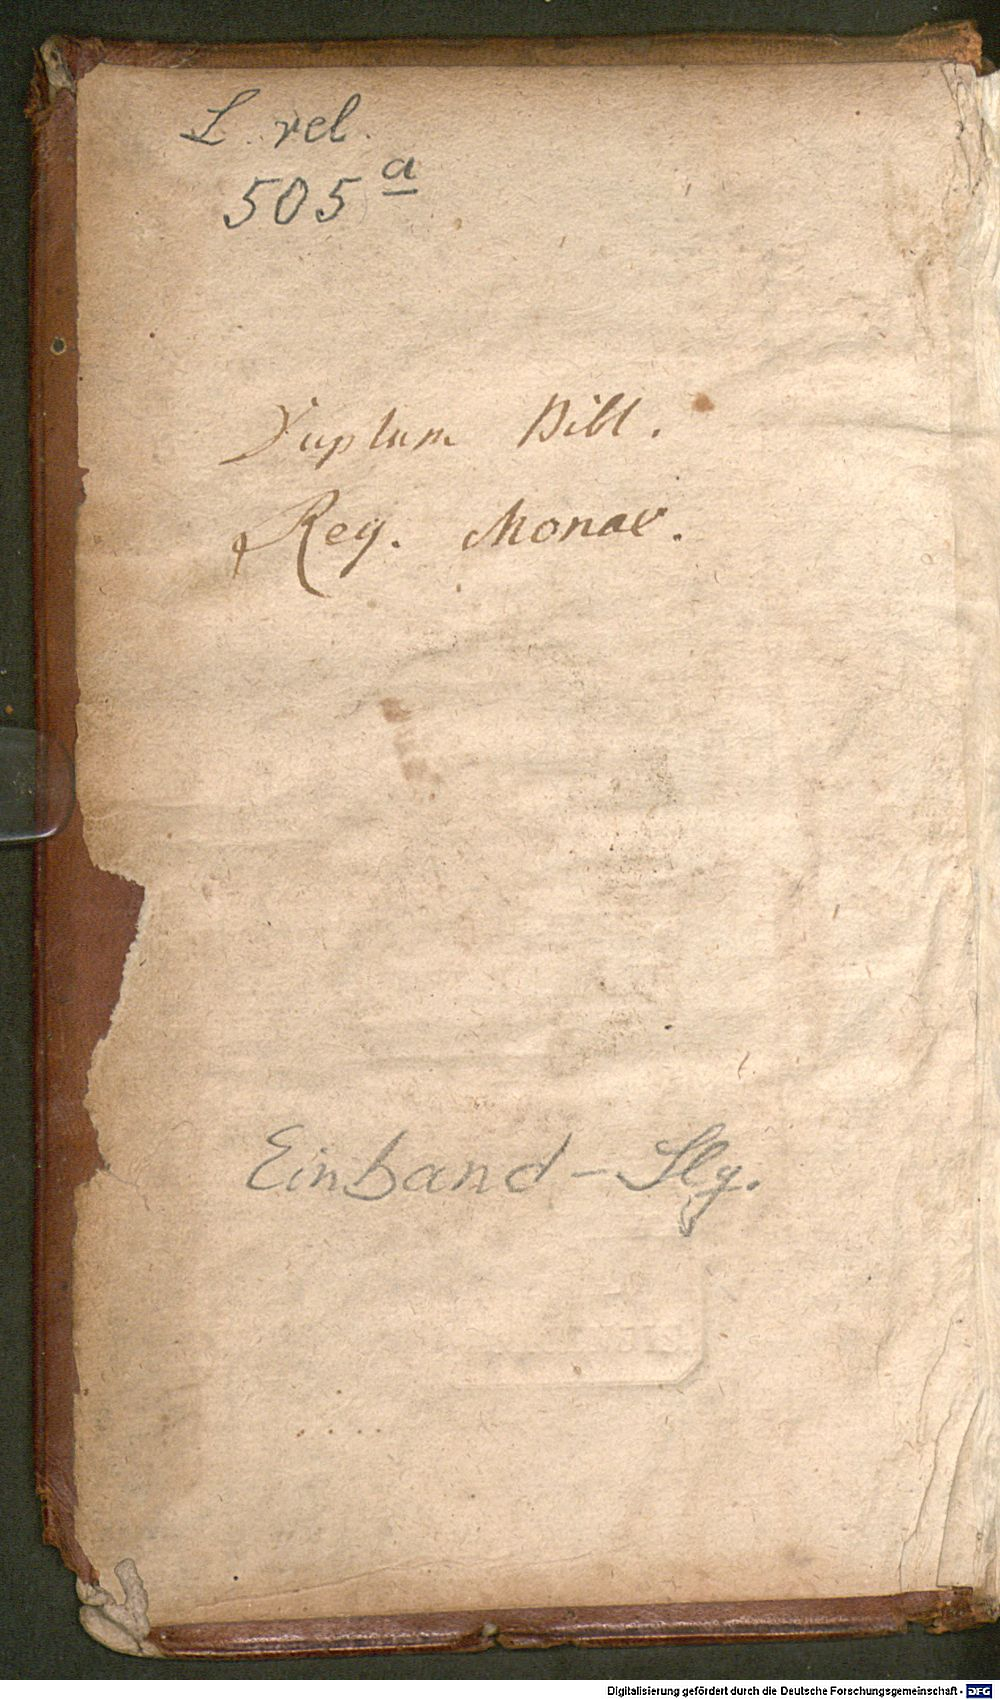 L. rel.
505 a
Duplum Bibl.
Reg. Monac.
Einband-Slg.
Digitalisierung gefördert durch die Deutsche Forschungsgemeinschaft - DFG